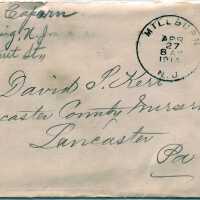 Caparn
N.J.
St.,
MILLBURN
APR
27
8 AM
N.J.
David S. Kerr
caster County Nurser
Lancaster
Pa